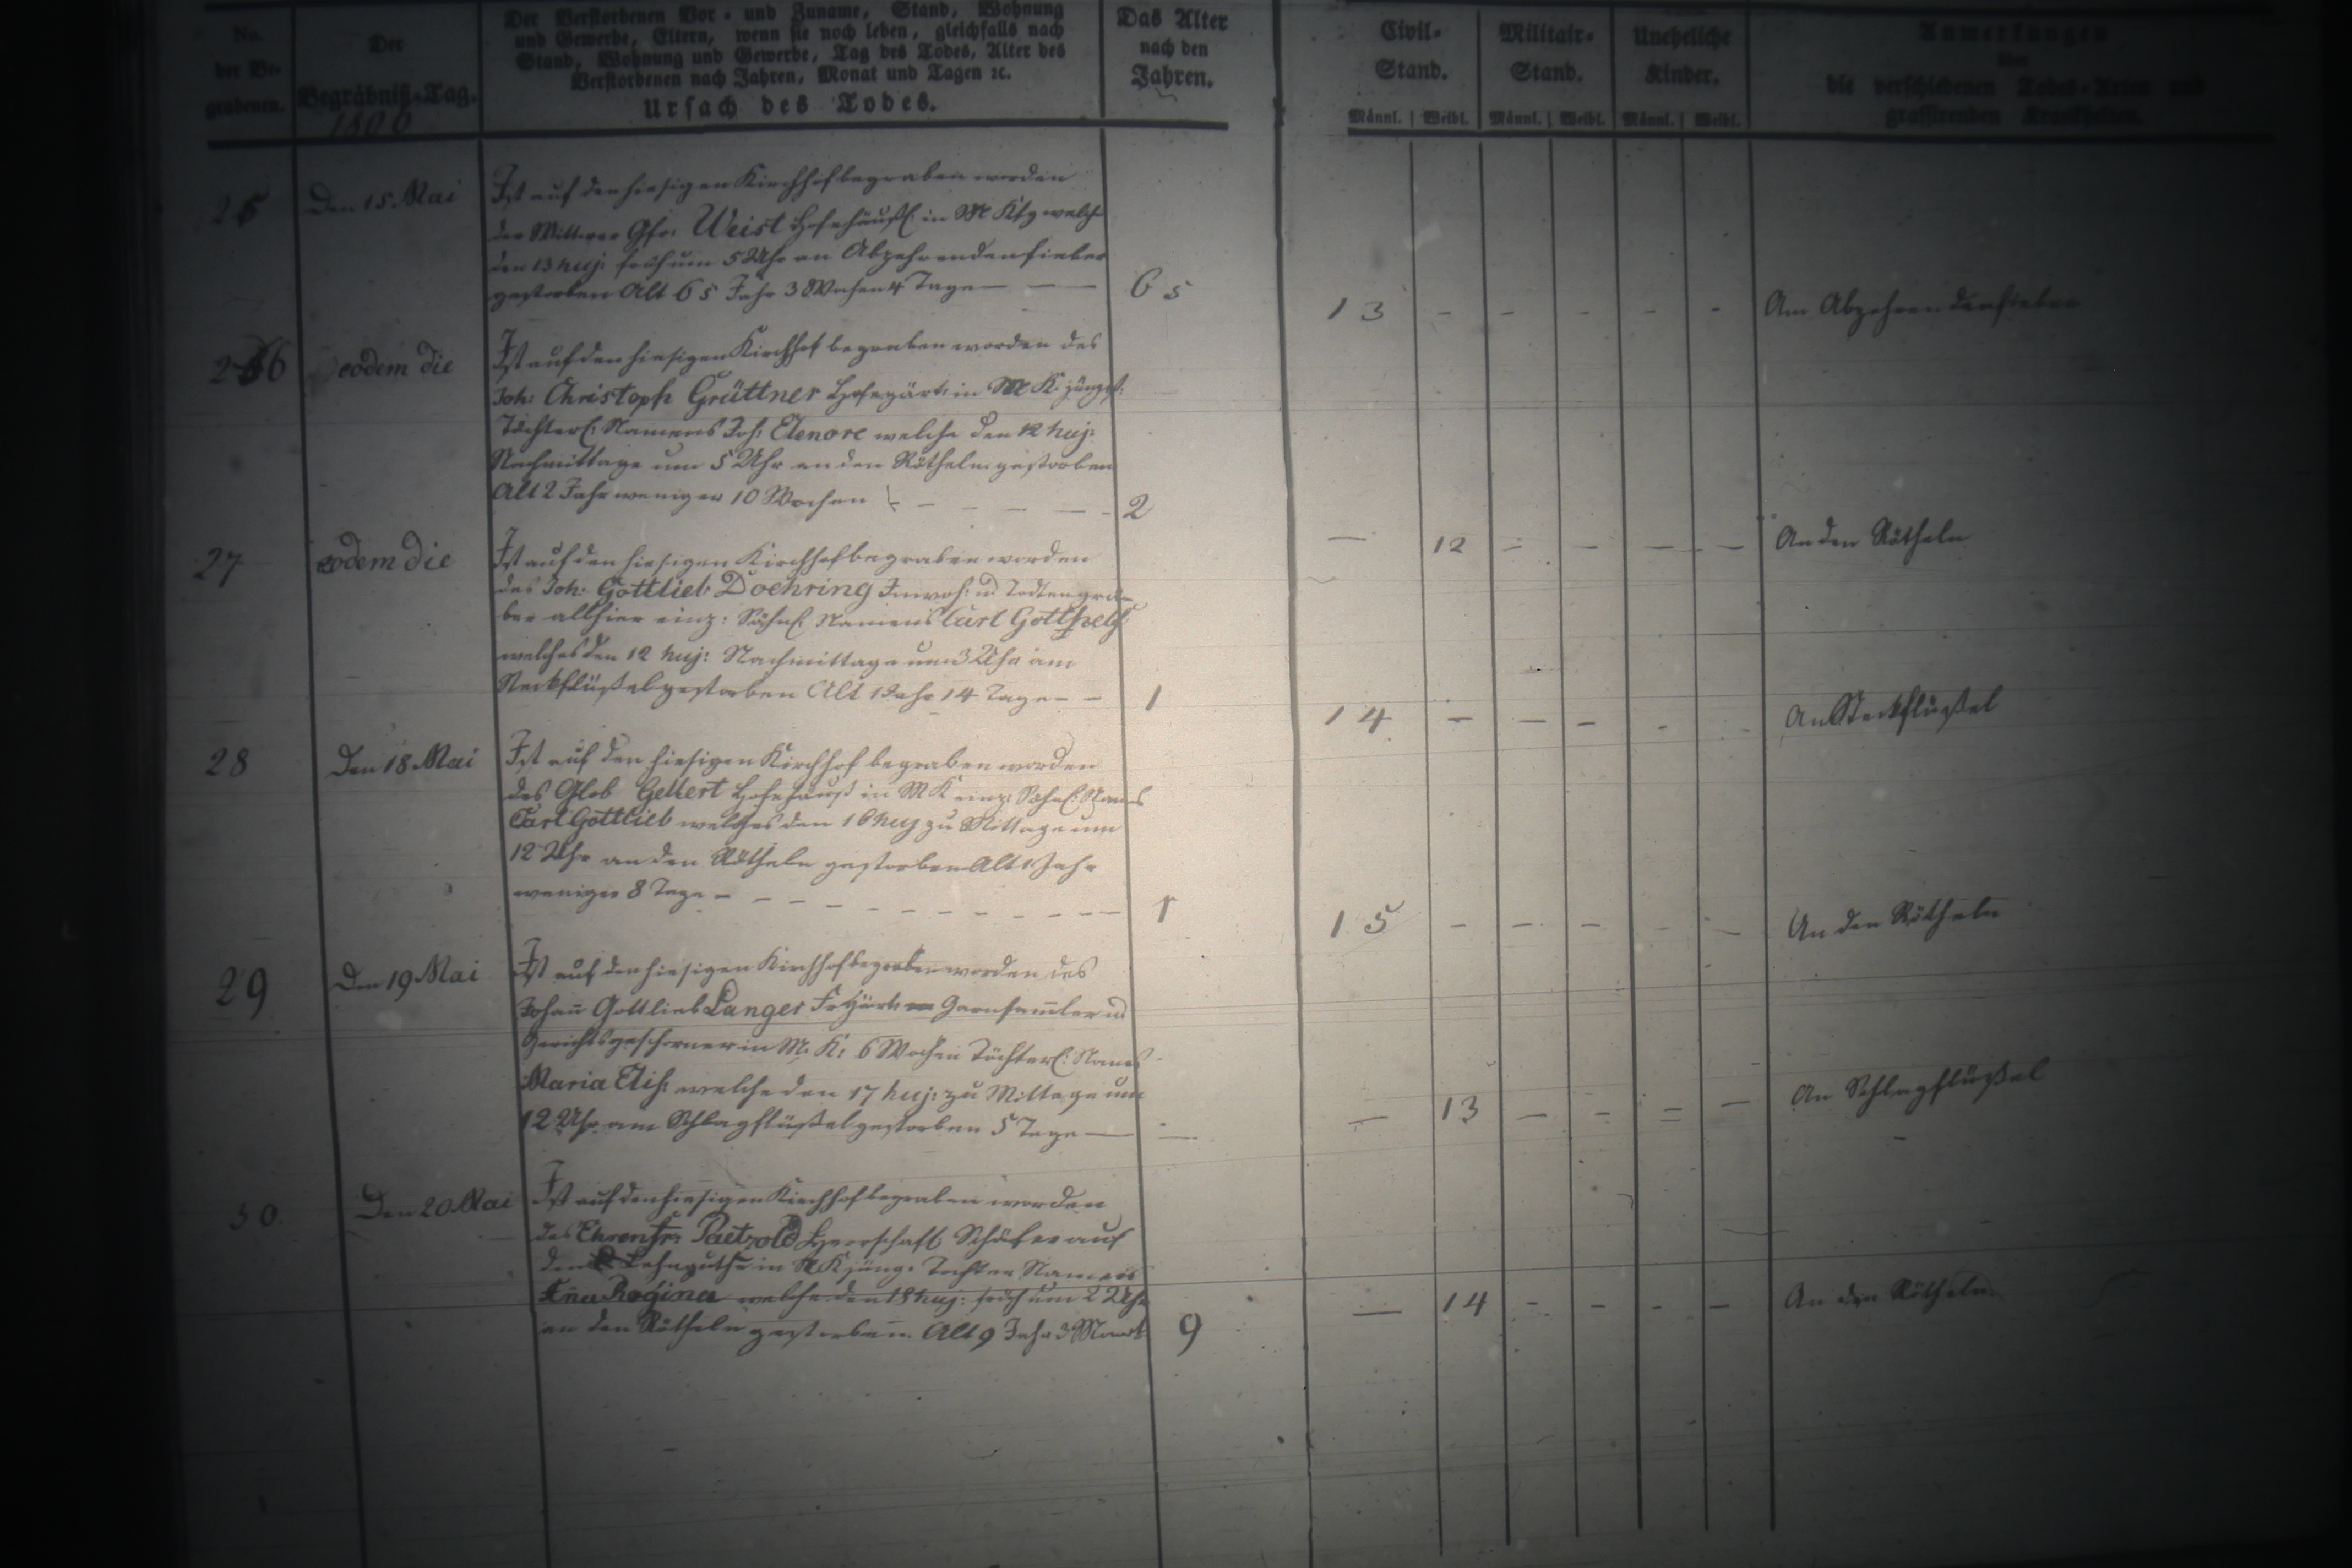 No. der Be- grabenen.
Der Begräbniß-Tag.
1806
Der Verstorbenen Vor- und Zuname, Stand, Wohnung
und Gewerbe, Eltern, wenn sie noch leben, gleichfalls nach
Stand, Wohnung und Gewerbe, Tag des Todes, Alter des
Verstorbenen nach Jahren, Monat und Tagen ꝛc.
Ursach des Todes.
Das Alter
nach den
Jahren.
Civil-
Stand.
Männl. Weibl.
Militair-
Stand.
Männl. Weibl.
Uneheliche
Kinder.
Männl. Weibl.
Anmerkungen
über
die verschiedenen Todes-Arten und
grassirenden Krankheiten.
25 Den 15 Mai
Ist auf den hiesigen Kirchhof begraben worden
der Wittwer Gfr: Weist Hofehäusl: in M Kfg welch
den 13 huj: früh um 5 Uhr an Abzehrendenfieber
gestorben Alt 65 Jahr 3 Wochen 4 Tage — — —
65
13 - - - - - Am Abzehrendenfieber
26 eodem die
Ist auf den hiesigen Kirchhof begraben worden des
Joh: Christoph Grüttner Hofegärt: in M K: jüngst:
Töchterl: Namens Joh: Elenore welche den 12 huj:
Nachmittage um 5 Uhr an den Rötheln gestorben
Alt 2 Jahr weniger 10 Wochen — — — — —
2
— 12 - - - - An den Rötheln
27 eodem die
Ist auf den hiesigen Kirchhof begraben worden
des Joh: Gottlieb Doehring Inwoh: u Todtengrä-
ber allhier einz: Söhnl: Namens Carl Gotthelf
welches den 12 huj: Nachmittage um 3 Uhr am
Steckflüßel gestorben Alt 1 Jahr 14 Tage - -
1
14 - - - - - An Steckflüßel
28 Den 18 Mai
Ist auf den hiesigen Kirchhof begraben worden
des Glob Gellert Hofehäusl in M K einz: Söhnl: Nams
Carl Gottlieb welches den 16 huj zu Mittage um
12 Uhr an den Rötheln gestorben Alt 1 Jahr
weniger 8 Tage - - - - - - - - - -
1
15 - - - - - An den Rötheln
29 Den 19 Mai
Ist auf den hiesigen Kirchhof begraben worden des
Johañ Gottlieb Langer Fr Gärt: Garnsam̄ler u
Gerichtsgeschworner in M. K: 6 Wochen Töchterl: Nams
Maria Elis: welche den 17 huj: zu Mittage um
12 Uhr am Schlagflüßel gestorben 5 Tage —
—
— 13 - - - - An Schlagflüßel
30 Den 20 Mai
Ist auf den hiesigen Kirchhof begraben worden
des Ehrenfr: Paetzold Herrschaftl Schäfer auf
den Lehnguthe in K jüng: Tochter Namens
Añna Rosina welche den 18 huj: früh um 2 Uhr
an den Rötheln gestorben Alt 9 Jahr 3 Monat
9
— 14 - - - - An den Rötheln